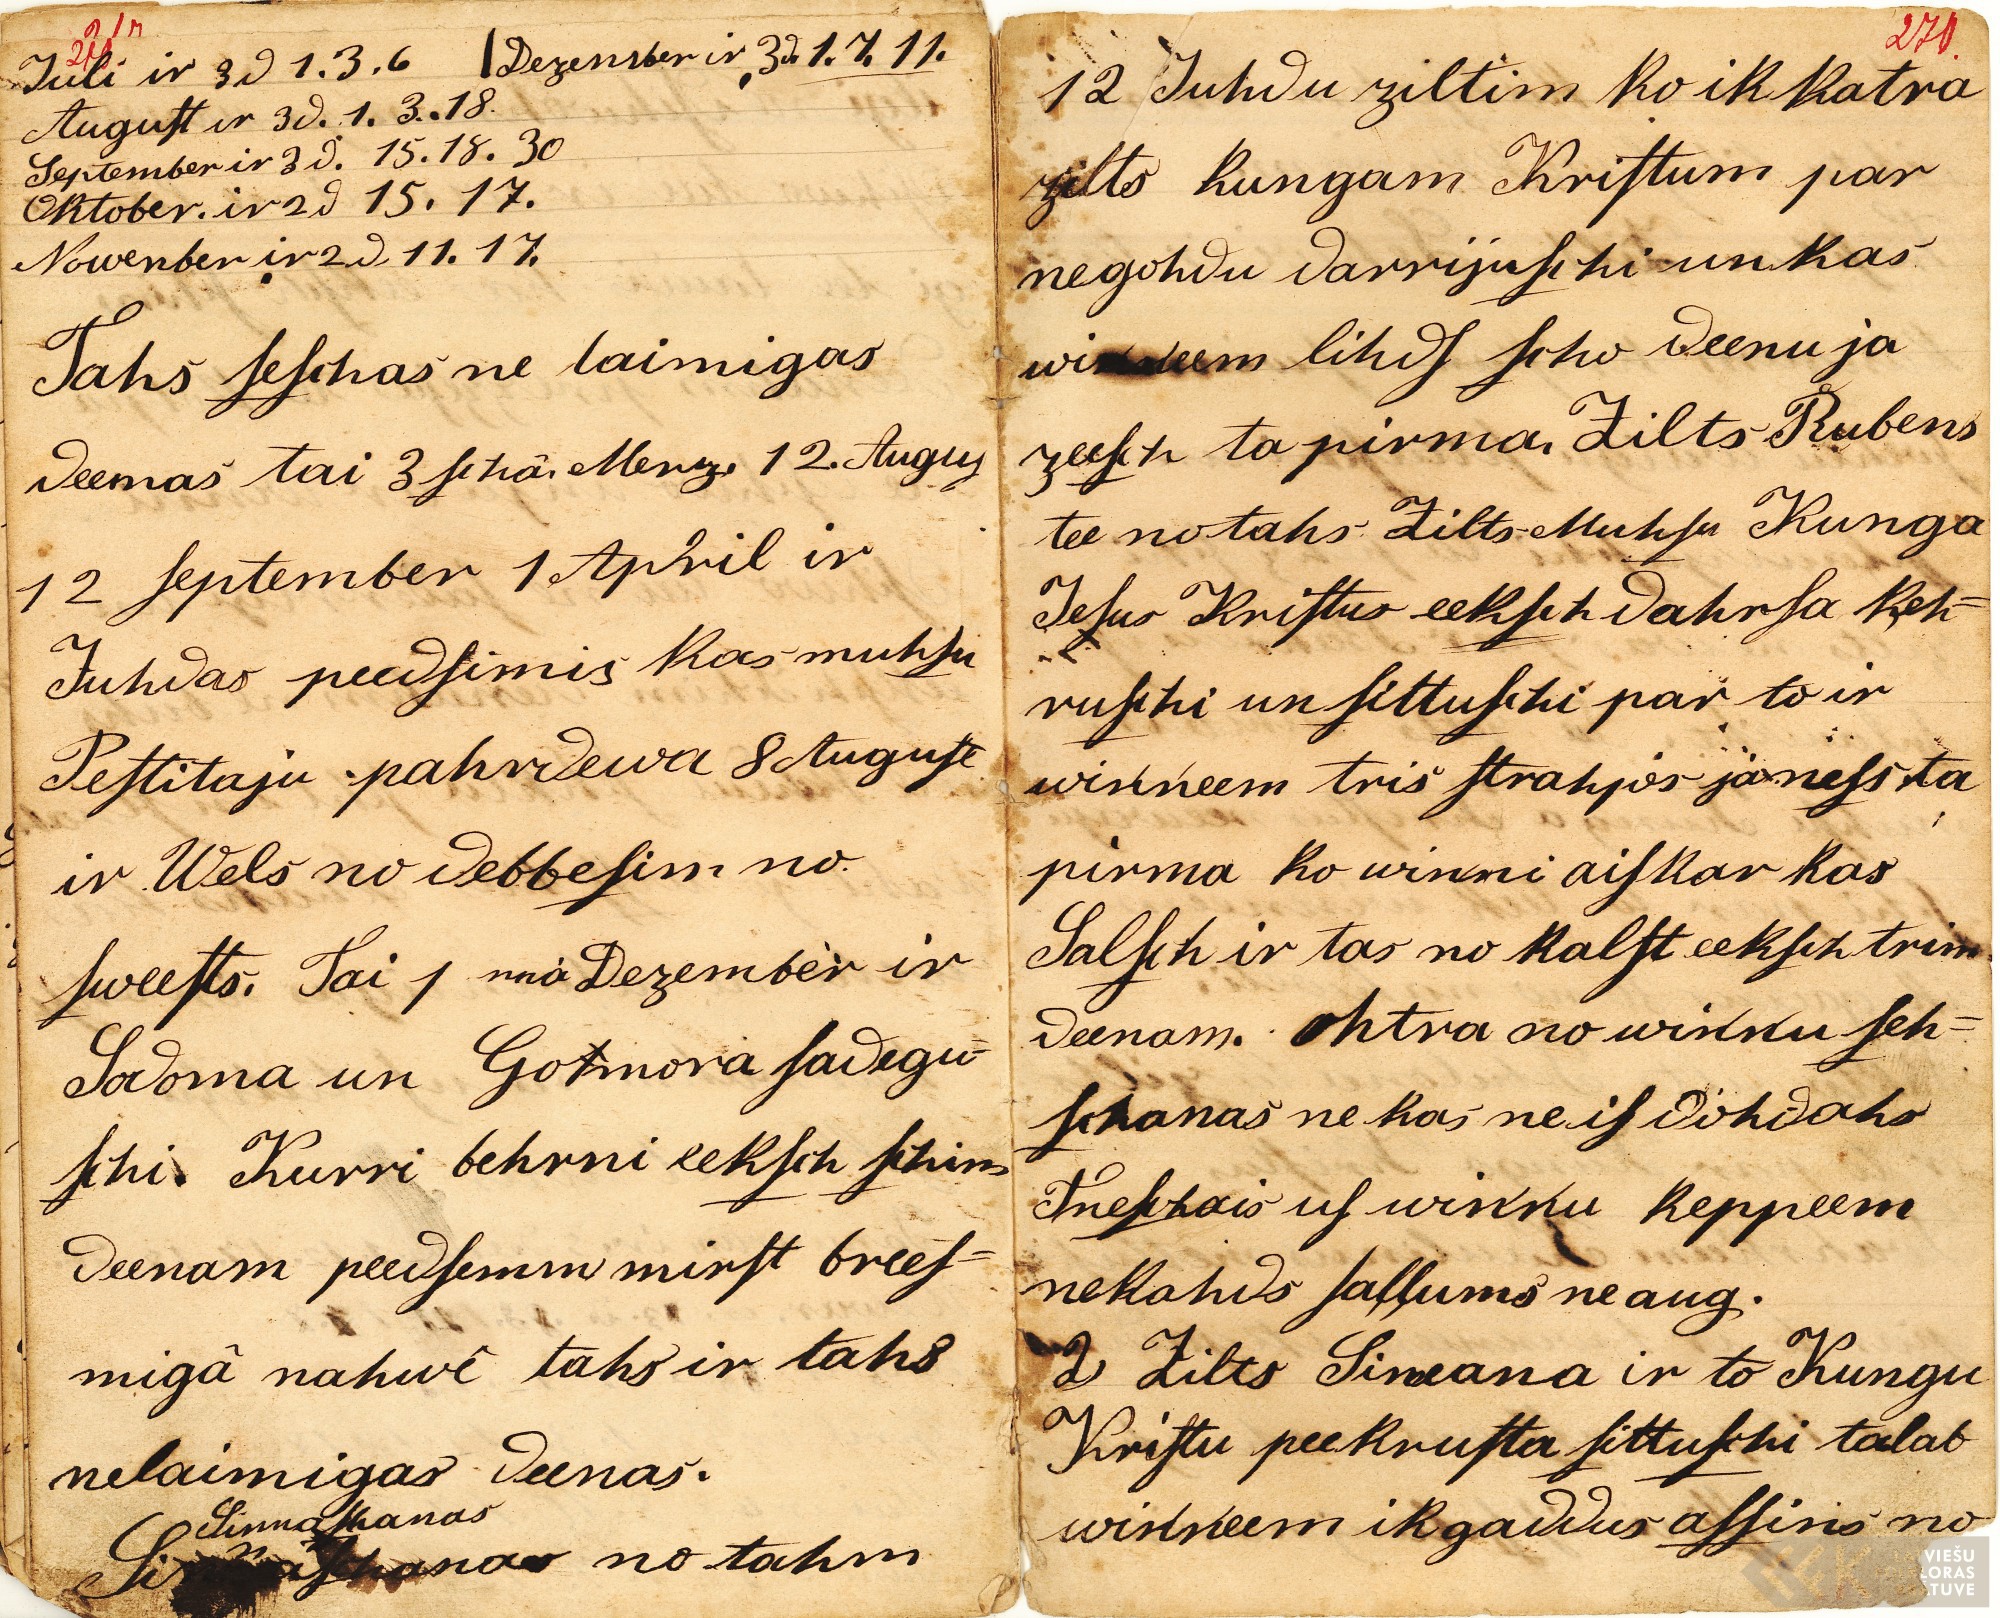 Juli ir 3 d 1. 3. 6 | Dezember ir 3 d. 1. 7. 11.
August ir 3 d. 1. 3. 18.
September ir 3 d. 15. 18. 30
Oktober. ir 2 d 15. 17.
Nowenber ir 2 d 11. 17.
Tahs ſeſchas ne laimigas
deenas tai 3 ſchâ. Merz. 12. Auguſ
12 ſeptember 1 April ir
Juhdas peedſimis kas muhſu
Peſtitaju pahrdewa 8 Auguſt
ir Wels no debbeſim no.
ſweeſts. Tai 1 mâ Dezember ir
Sodoma un Gotmora ſadegu=
ſchi. Kurri behrni eekſch ſchim
deenam peedſemm mirſt breeſ=
migâ nahwê tahs ir tahs
nelaimigas deenas.
Sinnaſchanas
no tahm
270.
12 Juhdu ziltim ko ik katra
zilts kungam Kriſtum par
negohdu darrijuſchi un kas
winneem lihdſ ſcho deenu ja
zeeſch ta pirma. Zilts Rubens
tee no tahs Zilts Muhſu Kunga
Jeſus Kriſtus eekſch dahrſa keh=
ruſchi un ſittuſchi par to ir
winneem tris ſtrahpes janeſs ta
pirma ko winni aiſkar kas
Salſch ir tas no kalſt eekſch trim
deenam. ohtra no winnu ſeh=
ſchanas ne kas ne iſ dohdahs
Treſchais uſ winnu keppeem
nekahds ſaſſums ne aug.
2 Zilts Simeana ir to Kungu
Kriſtu pee kruſta ſittuſchi talab
winneem ik gaddus aſſins no
VIEŠU
LORAS
TUVE